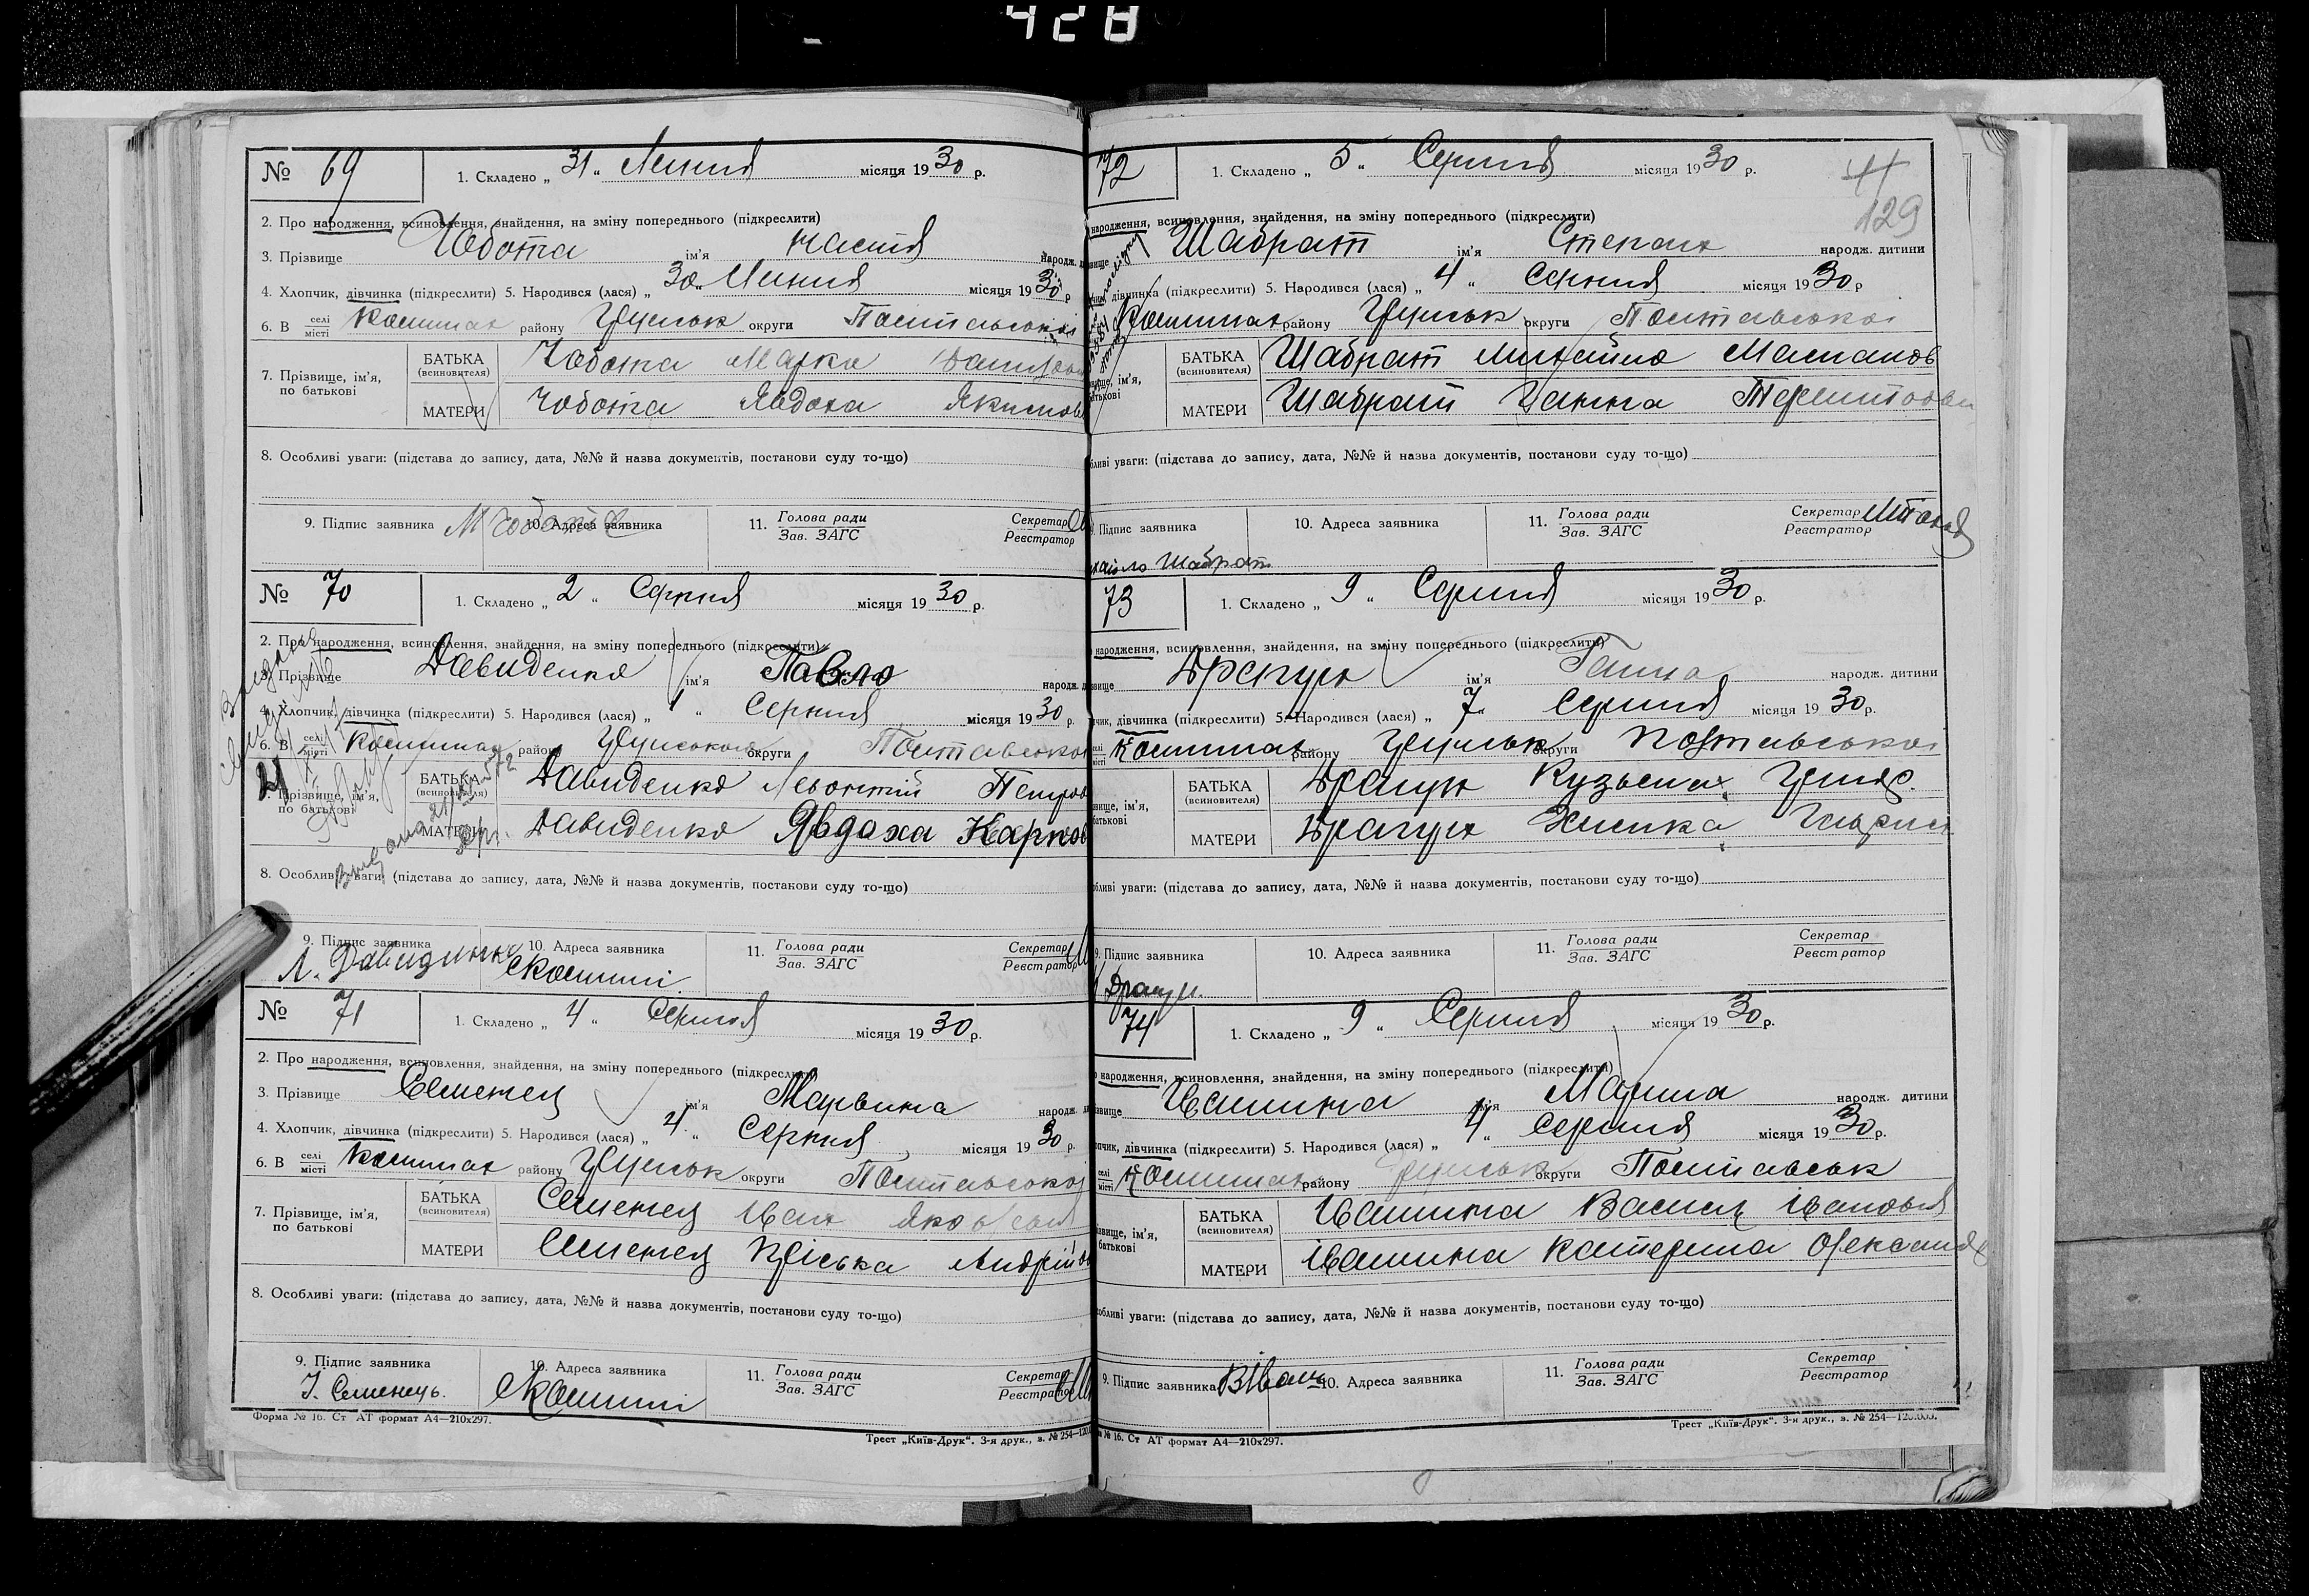 428
№ 69
1. Складено „ 31 “ Липня місяця 19 30 р.
2. Про народження, всиновлення, знайдення, на зміну попереднього (підкреслити)
3. Прізвище Чобота ім'я Настя народж.
4. Хлопчик, дівчинка (підкреслити) 5. Народився (лася) „ 30 “ Липня місяця 19 30 р
6. В селі місті району округи Полтавської
7. Прізвище, ім'я, по батькові
БАТЬКА (всиновителя) Чобота Марко
МАТЕРИ Чобота Явдоха Якимов
8. Особливі уваги: (підстава до запису, дата, №№ й назва документів, постанови суду то-що)
9. Підпис заявника М Чобота 10. Адреса заявника 11. Голова ради Зав. ЗАГС Секретар Реєстратор
№ 70
1. Складено „ 2 “ Серпня місяця 19 30 р.
2. Про народження, всиновлення, знайдення, на зміну попереднього (підкреслити)
3. Прізвище Давиденко ім'я Павло народж.
4. Хлопчик, дівчинка (підкреслити) 5. Народився (лася) „ 1 “ Серпня місяця 19 30 р.
6. В селі місті району округи Полтавської
7. Прізвище, ім'я, по батькові
БАТЬКА (всиновителя) Давиденко Левонтій Петров
МАТЕРИ Давиденко Явдоха Карпов
8. Особливі уваги: (підстава до запису, дата, №№ й назва документів, постанови суду то-що)
9. Підпис заявника 10. Адреса заявника 11. Голова ради Зав. ЗАГС Секретар Реєстратор
Л.
№ 71
1. Складено „ 4 “ Серпня місяця 19 30 р.
2. Про народження, всиновлення, знайдення, на зміну попереднього (підкреслити)
3. Прізвище Семенец ім'я Марвина народж.
4. Хлопчик, дівчинка (підкреслити) 5. Народився (лася) „ 4 “ Серпня місяця 19 30 р.
6. В селі місті району округи Полтавської
7. Прізвище, ім'я, по батькові
БАТЬКА (всиновителя) Семенец Іван
МАТЕРИ Семенец Пріська Андрійов
8. Особливі уваги: (підстава до запису, дата, №№ й назва документів, постанови суду то-що)
9. Підпис заявника 10. Адреса заявника 11. Голова ради Зав. ЗАГС Секретар Реєстратор
І. Семенець.
Форма № 16. Ст АТ формат А4—210х297.
Трест „Київ-Друк“. 3-я друк., з. № 254—120.
72
1. Складено „ 5 “ Серпня місяця 19 30 р.
129
народження, всиновлення, знайдення, на зміну попереднього (підкреслити)
Шабрат ім'я Степан народж. дитини
дівчинка (підкреслити) 5. Народився (лася) „ 4 “ Серпня місяця 19 30 р
району округи Полтавської
БАТЬКА (всиновителя) Шабрат Михайло
МАТЕРИ Шабрат Ганна
уваги: (підстава до запису, дата, №№ й назва документів, постанови суду то-що)
9. Підпис заявника 10. Адреса заявника 11. Голова ради Зав. ЗАГС Секретар Реєстратор
Шабрат
73
1. Складено „ 9 “ Серпня місяця 19 30 р.
народження, всиновлення, знайдення, на зміну попереднього (підкреслити)
Драгун ім'я Ганна народж. дитини
дівчинка (підкреслити) 5. Народився (лася) „ 7 “ Серпня місяця 19 30 р.
району округи Полтавської
БАТЬКА (всиновителя) Драгун Кузьма
МАТЕРИ Драгун Химка Гаврил
уваги: (підстава до запису, дата, №№ й назва документів, постанови суду то-що)
9. Підпис заявника 10. Адреса заявника 11. Голова ради Зав. ЗАГС Секретар Реєстратор
Драгун.
74
1. Складено „ 9 “ Серпня місяця 19 30 р.
народження, всиновлення, знайдення, на зміну попереднього (підкреслити)
Івашина ім'я Марина народж. дитини
дівчинка (підкреслити) 5. Народився (лася) „ 4 “ Серпня місяця 19 30 р.
району округи Полтавськ
БАТЬКА (всиновителя) Івашина Василь Іванович
МАТЕРИ Івашина Катерина Олександ
уваги: (підстава до запису, дата, №№ й назва документів, постанови суду то-що)
9. Підпис заявника ВІваш 10. Адреса заявника 11. Голова ради Зав. ЗАГС Секретар Реєстратор
№ 16. Ст АТ формат А4—210х297.
Трест „Київ-Друк“. 3-я друк., з. № 254—120.000.